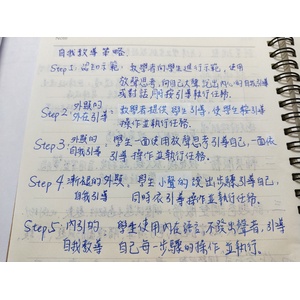 自我教導策略
Step1: 認知示範, 教學者向學生進行示範, 使用
放聲思考, 向自己大聲說出內心的自我引導
或對話, 來引導執行任務.
Step2: 外顯的 教學者提供學生引導, 使學生按引導
外在引導 操作並執行任務.
Step3: 外顯的 學生一面使用放聲思考引導自己, 一面依
自我引導 引導操作並執行任務.
Step4 漸褪的外顯 學生小聲的說出步驟引導自己,
自我引導 同時依引導操作並執行任務.
Step5: 內引的 學生使用內在語言, 不發出聲音, 引導
自我教導 自己每一步驟的操作並執行.